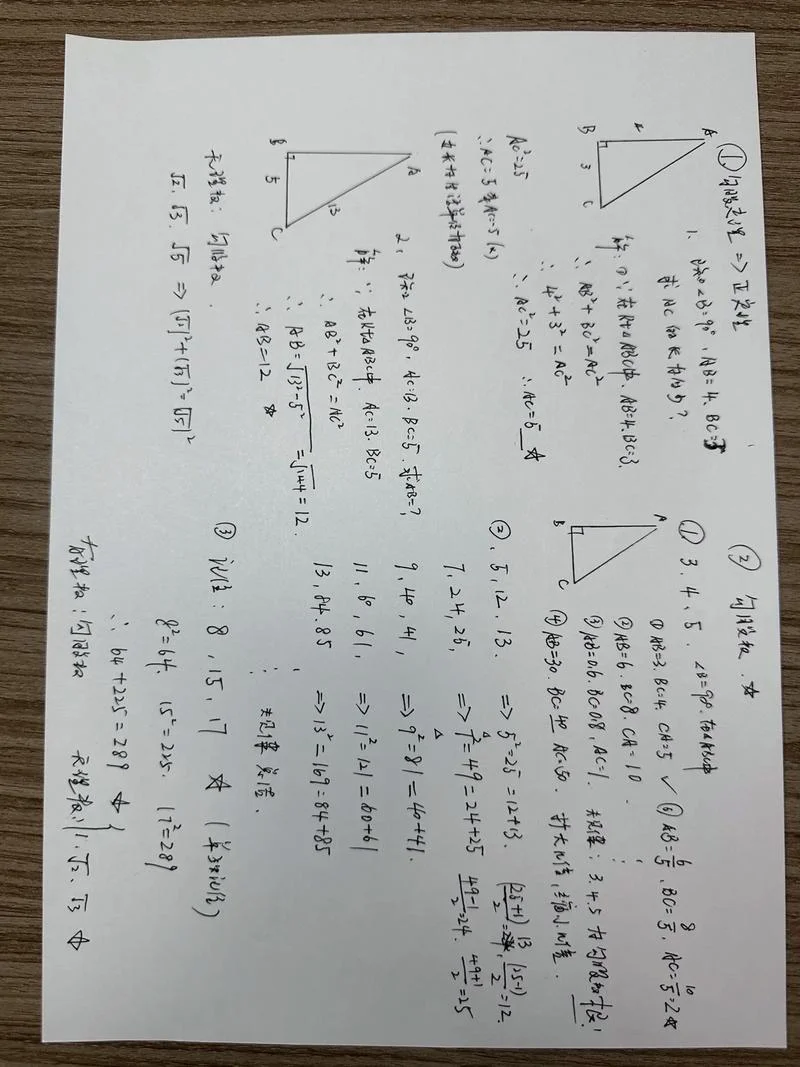 ① 勾股定理 => 正定理
1. 已知∠B=90°, AB=4. BC=3
求AC的长为多少?
A
4
B
3
C
解: ① ∵ 在Rt△ABC中, AB=4. BC=3.
∴ AB²+BC²=AC²
∴ 4²+3²=AC²
∴ AC²=25 ∴ AC=5 ☆
AC²=25
∴ AC=5或AC=-5(×)
2, 已知∠B=90°, AC=13. BC=5. 求AB=?
A
13
B
5
C
解: ∵ 在Rt△ABC中, AC=13. BC=5
∴ AB²+BC²=AC²
∴ AB=√13²-5² =√144=12.
∴ AB=12 ☆
无理数: 勾股数.
√2. √3. √5 => (√2)²+(√3)²=(√5)²
② 勾股数. ☆
① 3. 4. 5. ∠B=90°. 在△ABC中
A
B
C
① AB=3. BC=4. CA=5 ✓
⑤ AB=6/5, BC=8/5, AC=10/5=2 ☆
② AB=6. BC=8. CA=10.
③ AB=0.6. BC=0.8, AC=1.
④ AB=30. BC=40 AC=50. 扩大n倍, 缩小n倍.
② . 5, 12, 13. => 5²=25=12+13.
(25+1)/2=13, (25-1)/2=12.
7, 24, 25, => 7²=49=24+25
49-1/2=24. 49+1/2=25
9, 40, 41, => 9²=81=40+41.
11, 60, 61, => 11²=121=60+61
13, 84, 85 => 13²=169=84+85
③ 记住: 8, 15, 17 ☆
8²=64. 15²=225. 17²=289
∴ 64+225=289 ☆
有理数: 勾股数
无理数: 1. √2. √3 ☆